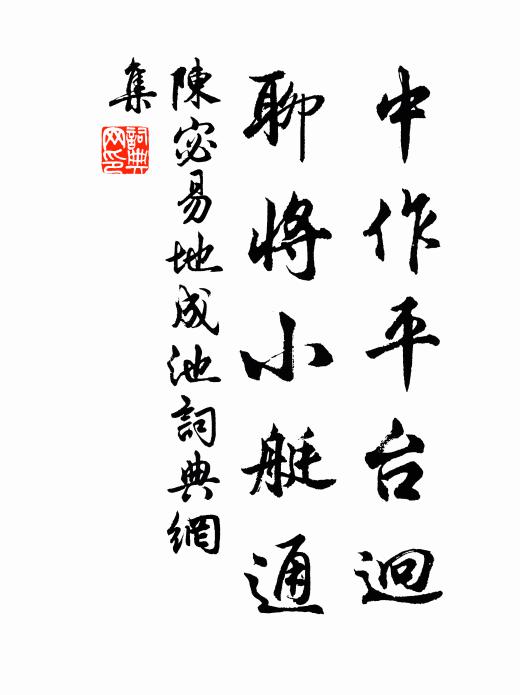 中作平台迥
聊将小艇通
陳宓易地成池詞典網
集
詞典
网印